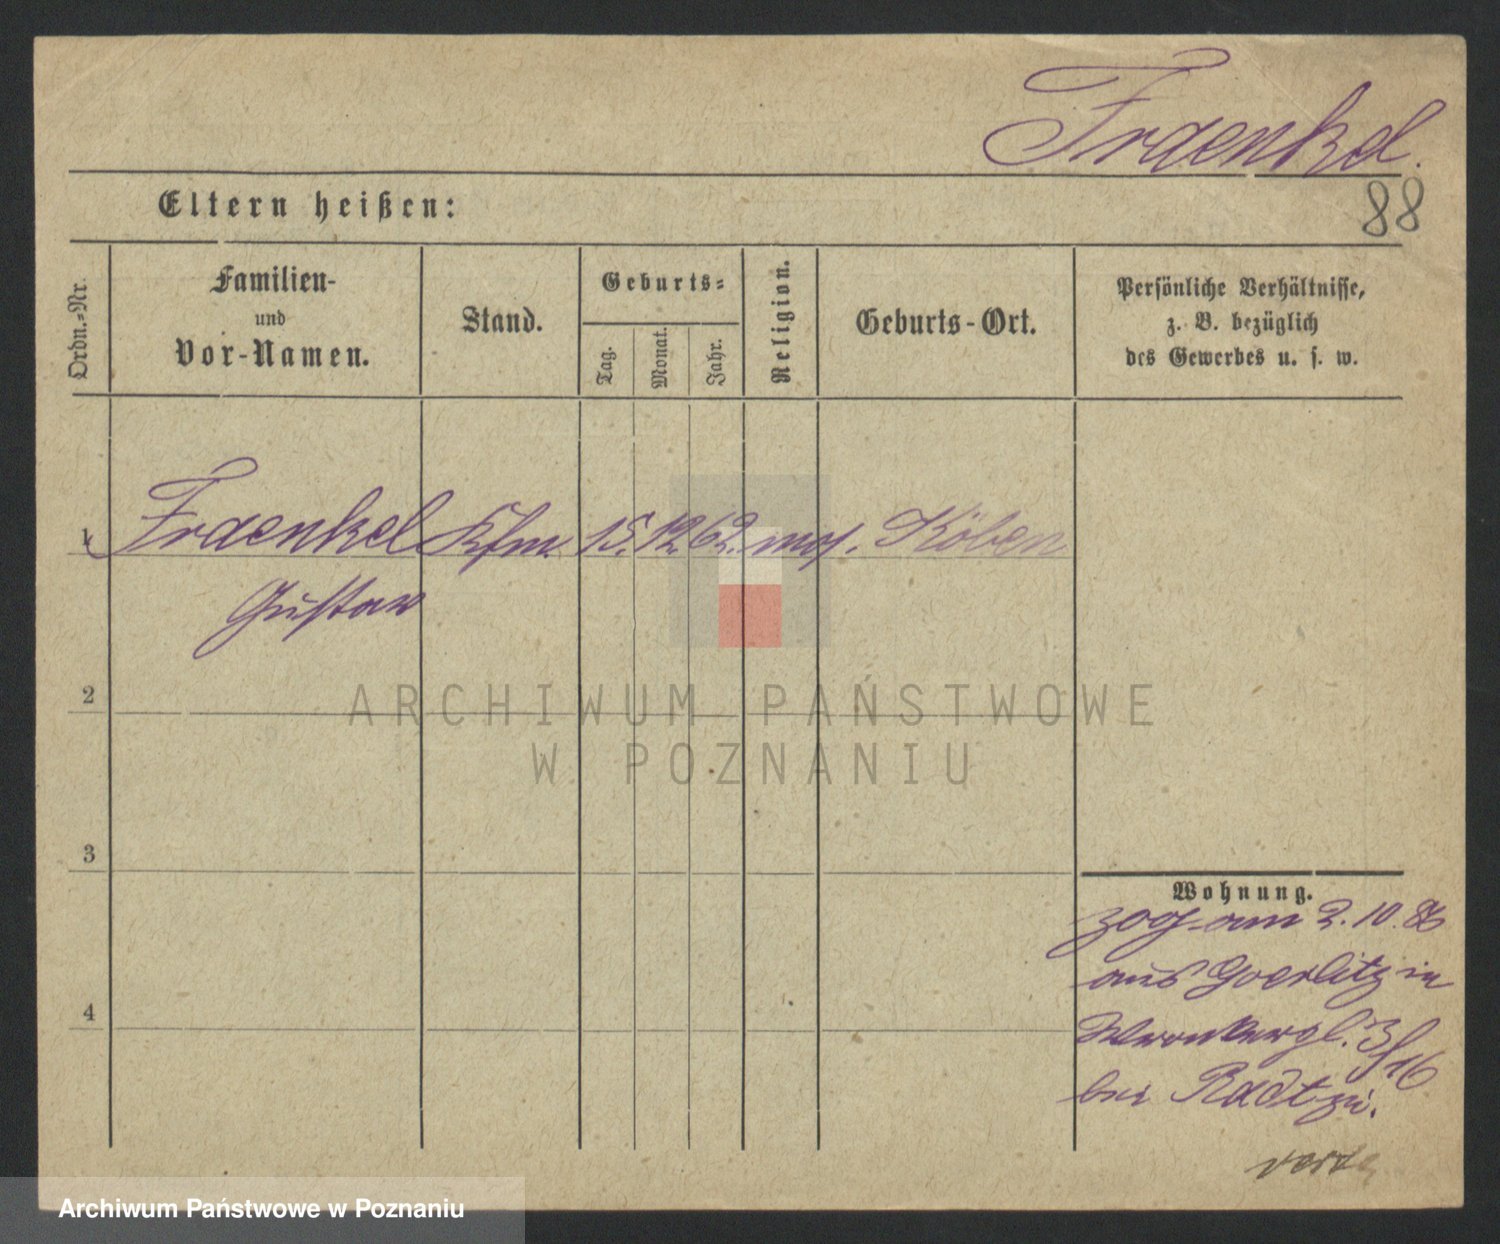 Fraenkel.
88
Eltern heißen:
Ordn.-Nr.
Familien-
und
Vor-Namen.
Stand.
Geburts-
Tag.
Monat.
Jahr.
Religion.
Geburts-Ort.
Persönliche Verhältnisse,
z. B. bezüglich
des Gewerbes u. s. w.
1 Fraenkel Kfm. 15. 12. 62. mos. Köben
Gustav
2
3
4
Wohnung.
zog am 2. 10. 86
aus Goerlitz in
Wronkergl. 3/16
bei
ARCHIWUM PAŃSTWOWE
W POZNANIU
Archiwum Państwowe w Poznaniu